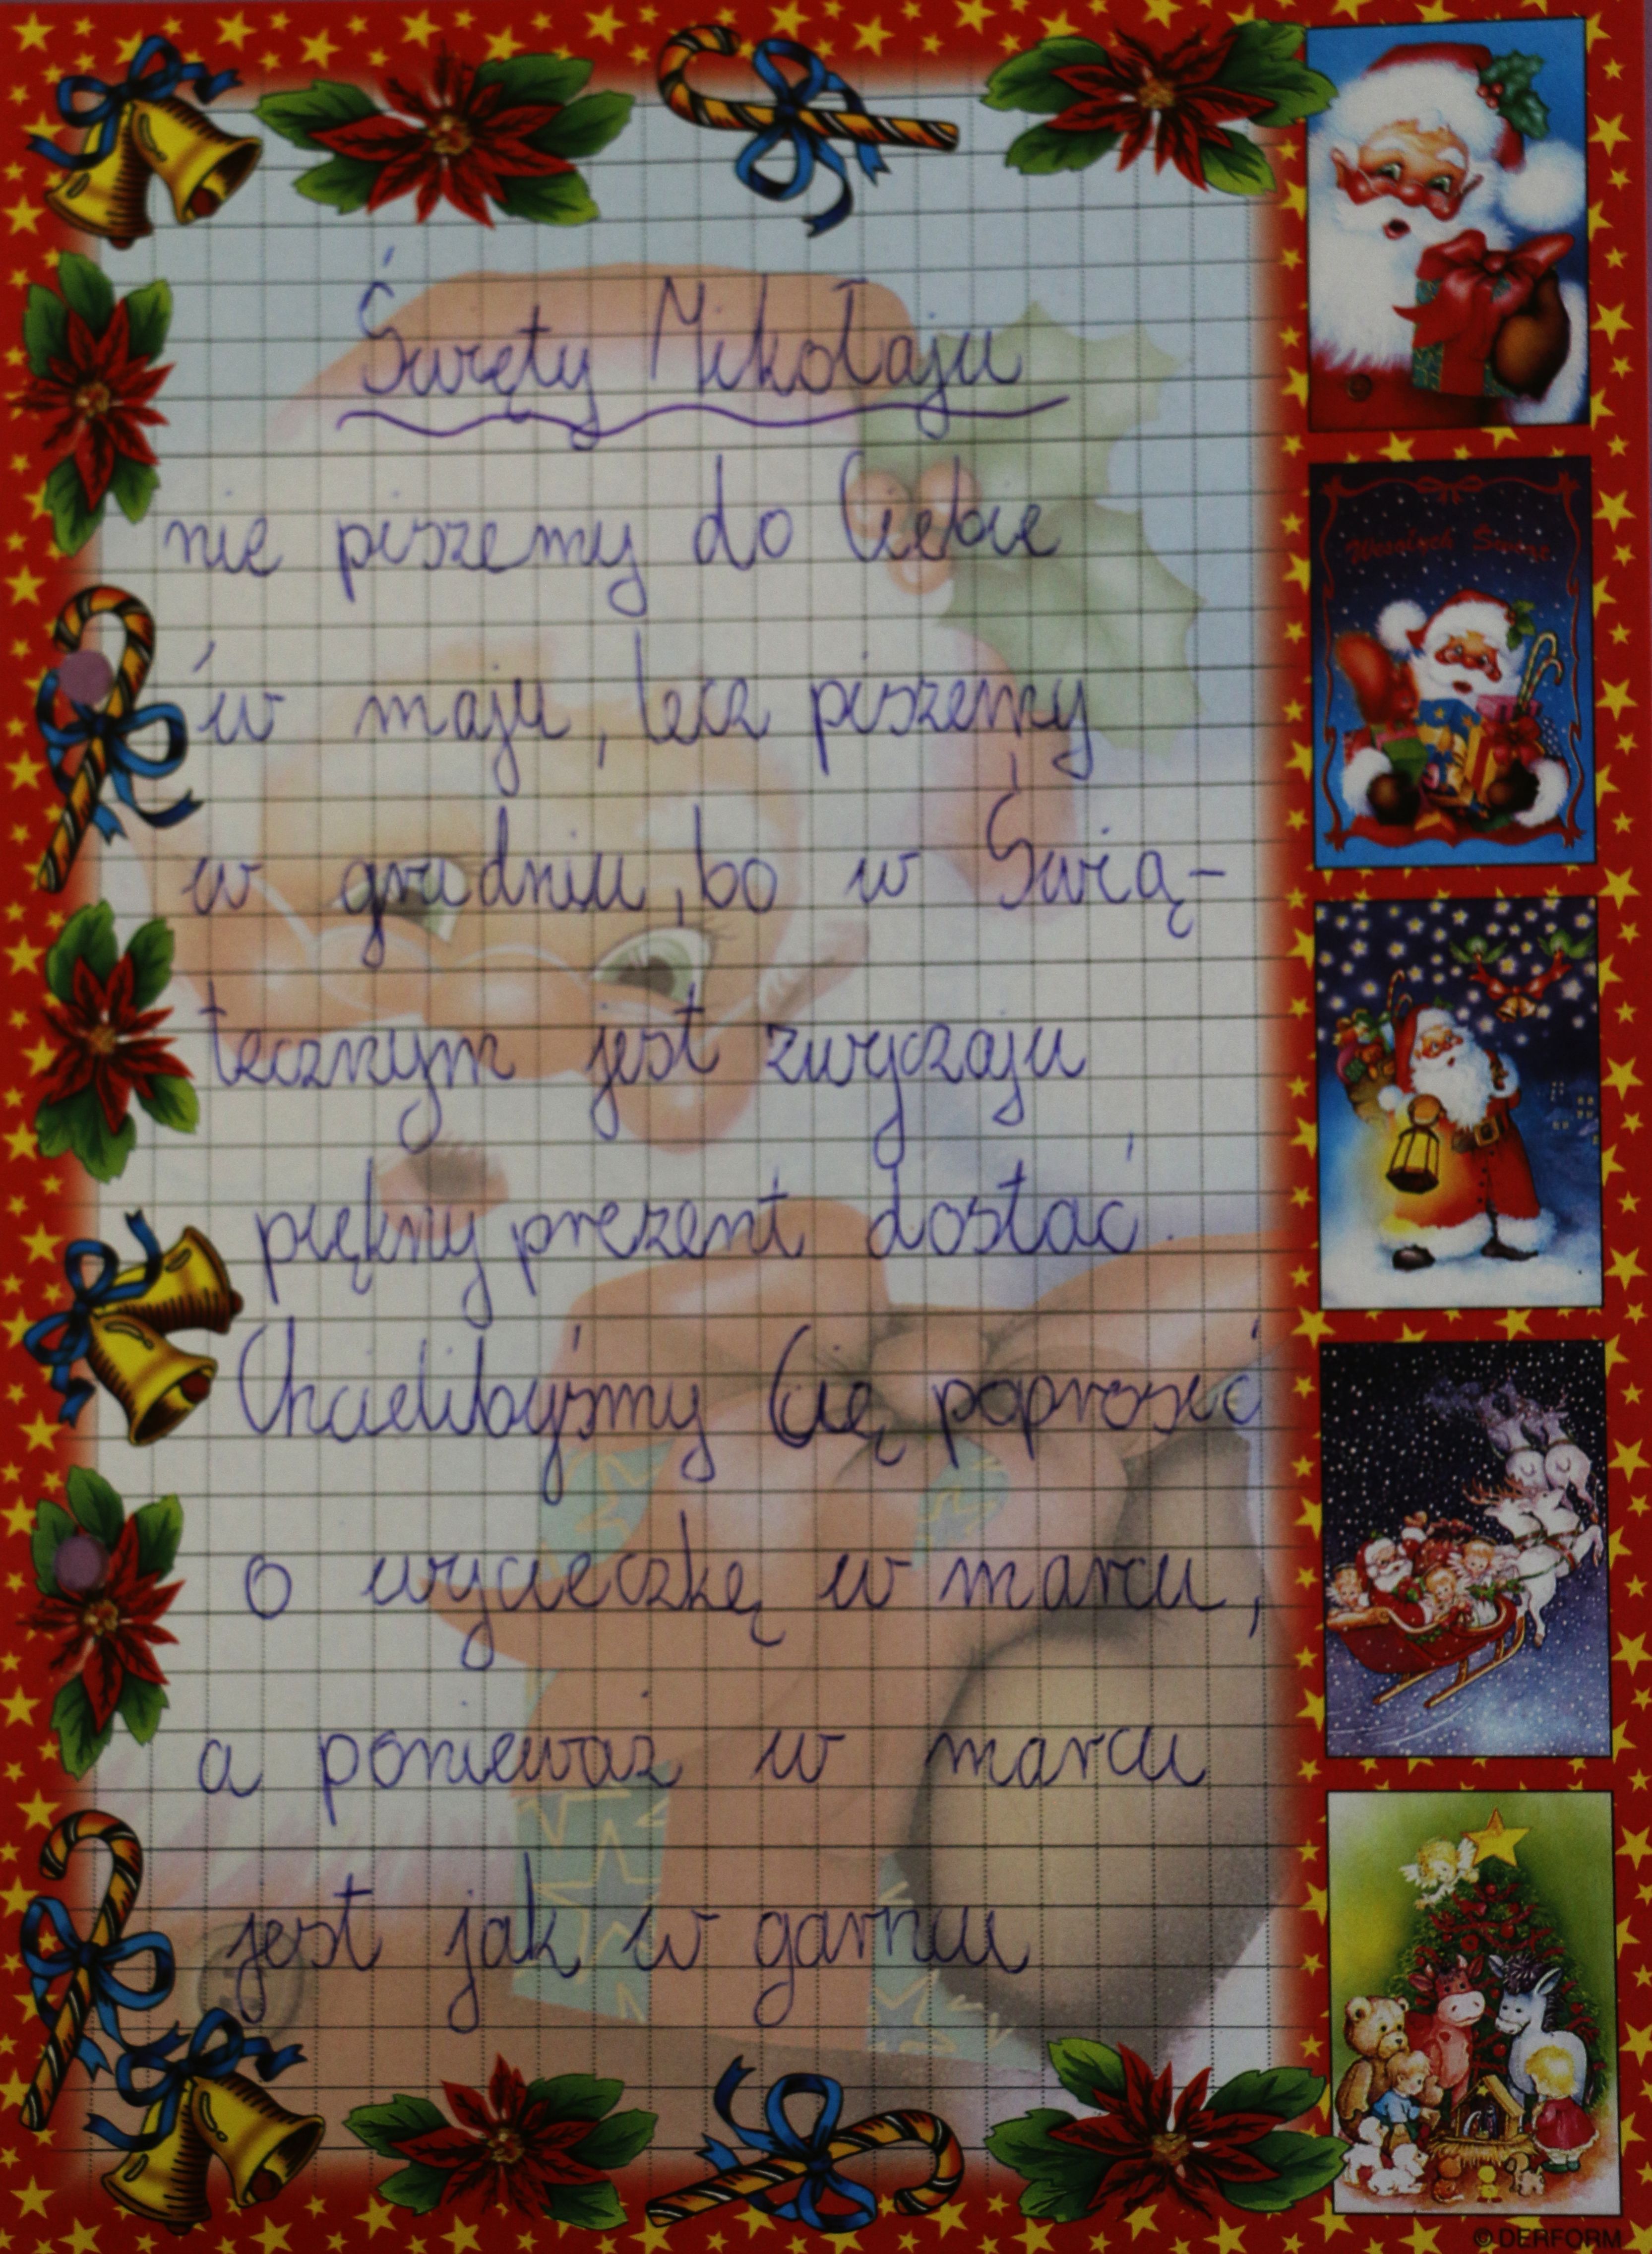 Święty Mikołaju
nie piszemy do Ciebie
w maju, lecz piszemy
w grudniu, bo w Świą-
tecznym jest zwyczaju
piękny prezent dostać.
Chcielibyśmy Cię poprosić
o wycieczkę w marcu,
a ponieważ w marcu
jest jak w garncu
Wesołych Świąt
© DERFORM